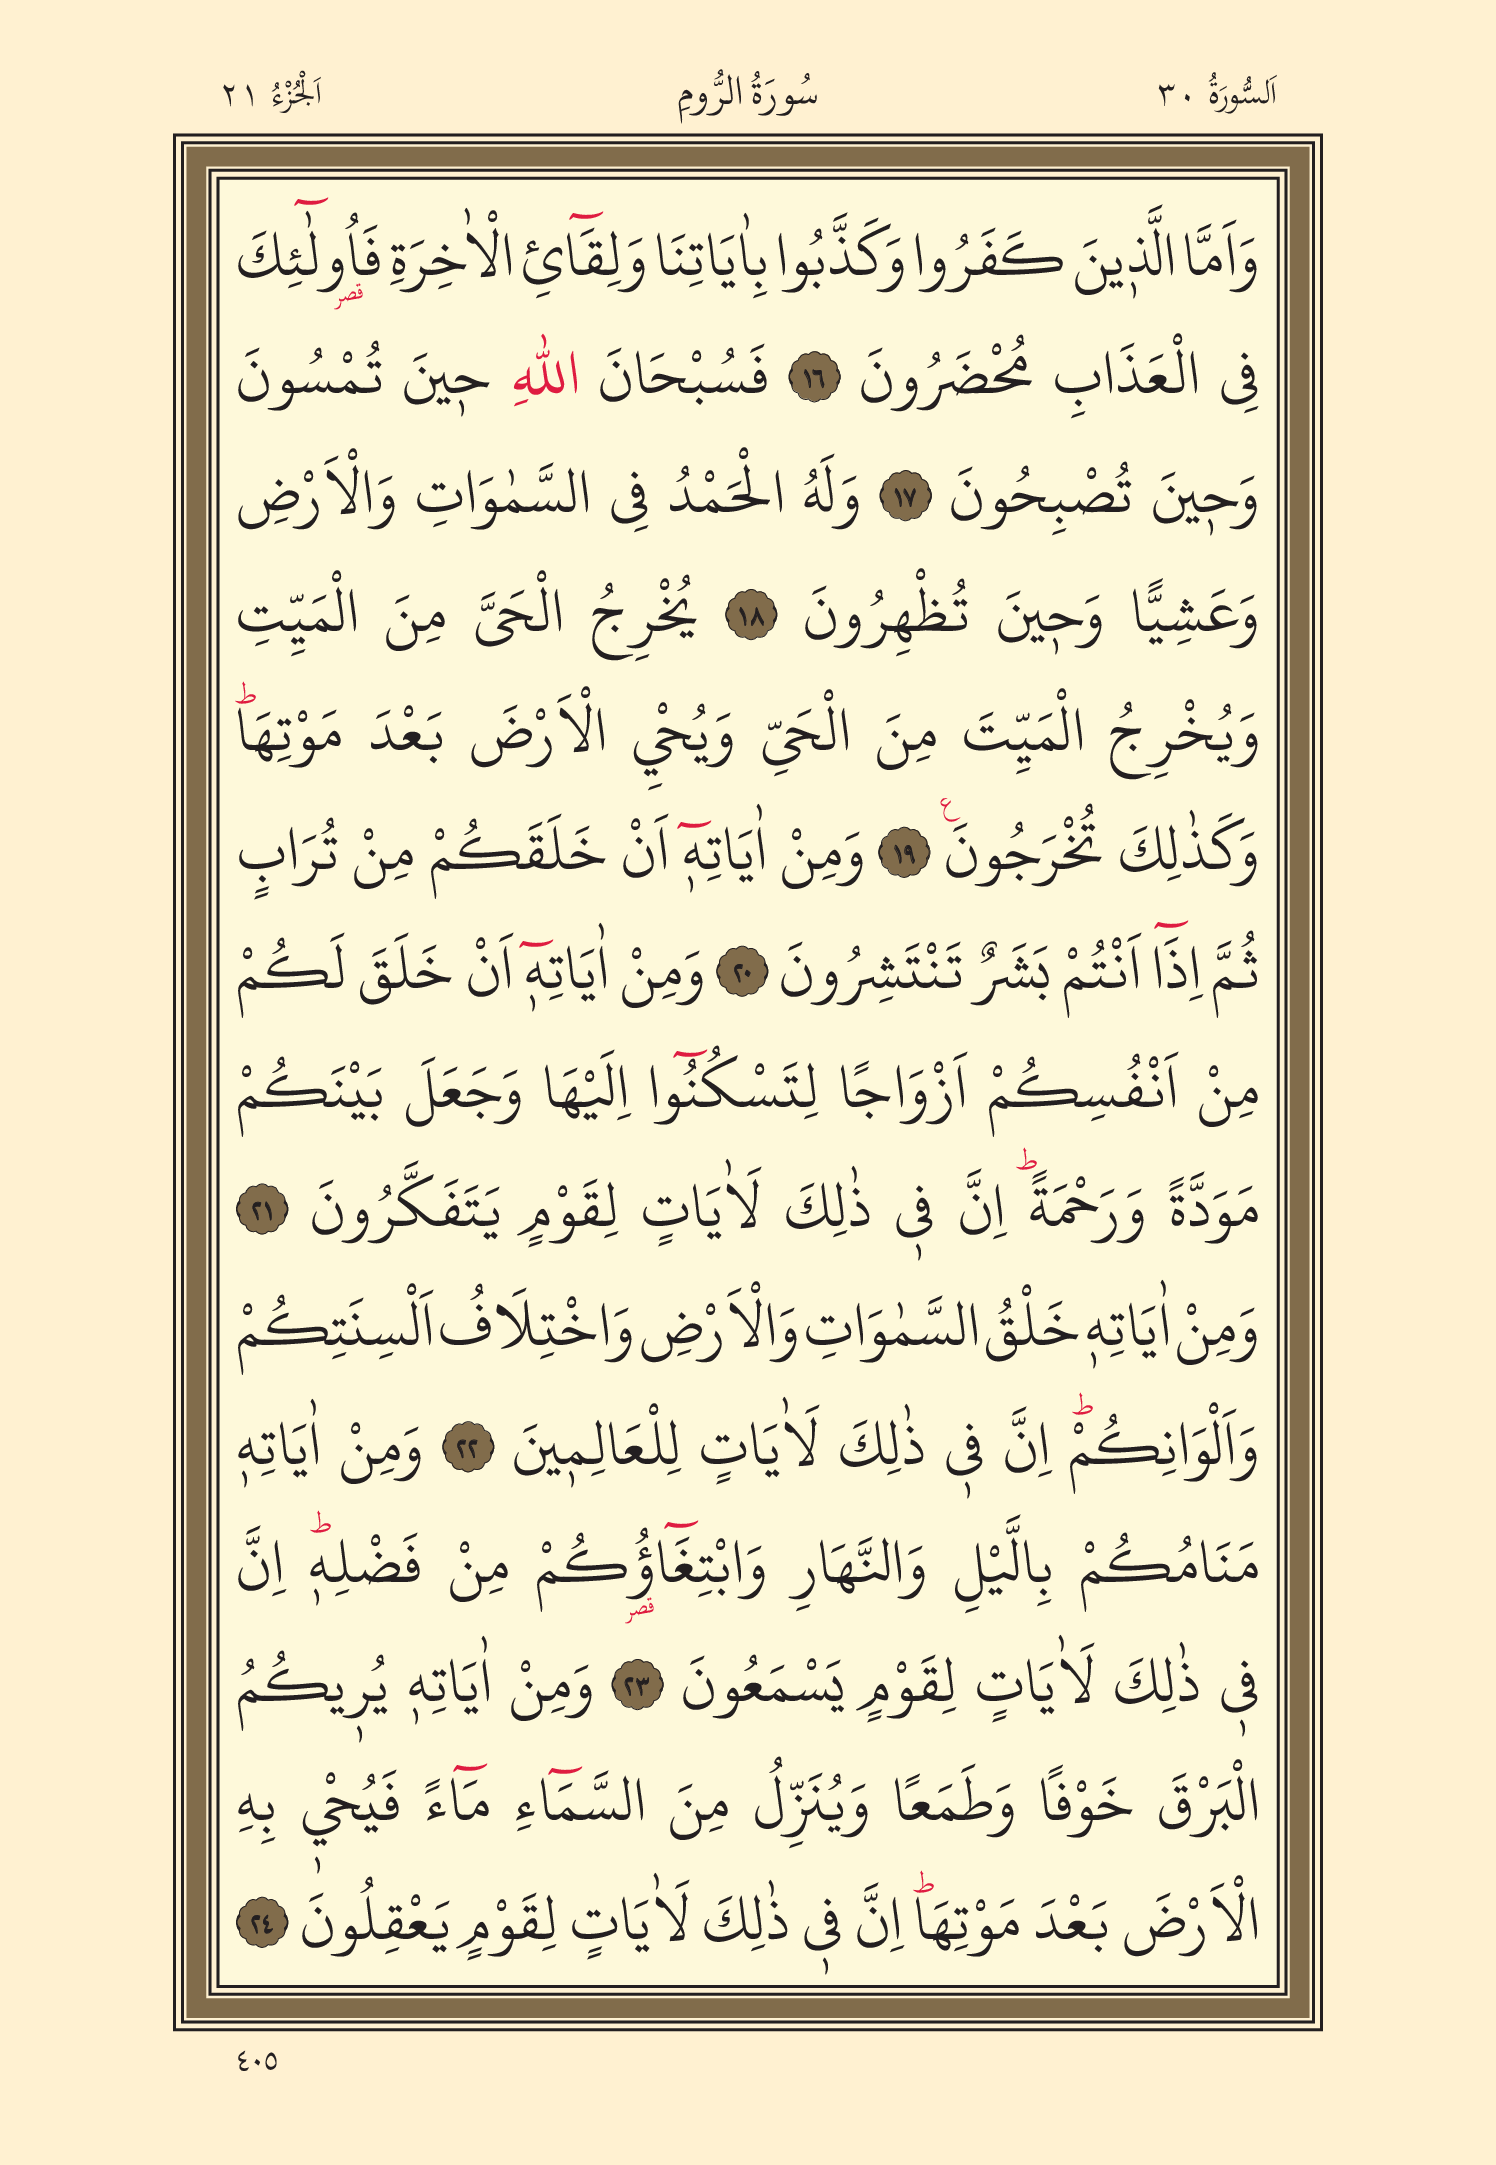 اَلسُّورَةُ ٣٠ سُورَةُ الرُّومِ اَلْجُزْءُ ٢١
وَاَمَّا الَّذ۪ينَ كَفَرُوا وَكَذَّبُوا بِاٰيَاتِنَا وَلِقَٓائِ الْاٰخِرَةِ فَاُو۬لٰٓئِكَ
قصر
فِي الْعَذَابِ مُحْضَرُونَ ١٦ فَسُبْحَانَ اللّٰهِ ح۪ينَ تُمْسُونَ
وَح۪ينَ تُصْبِحُونَ ١٧ وَلَهُ الْحَمْدُ فِي السَّمٰوَاتِ وَالْاَرْضِ
وَعَشِيًّا وَح۪ينَ تُظْهِرُونَ ١٨ يُخْرِجُ الْحَيَّ مِنَ الْمَيِّتِ
وَيُخْرِجُ الْمَيِّتَ مِنَ الْحَيِّ وَيُحْيِ الْاَرْضَ بَعْدَ مَوْتِهَاۜ
وَكَذٰلِكَ تُخْرَجُونَ۟ ١٩ وَمِنْ اٰيَاتِه۪ٓ اَنْ خَلَقَكُمْ مِنْ تُرَابٍ
ثُمَّ اِذَٓا اَنْتُمْ بَشَرٌ تَنْتَشِرُونَ ٢٠ وَمِنْ اٰيَاتِه۪ٓ اَنْ خَلَقَ لَكُمْ
مِنْ اَنْفُسِكُمْ اَزْوَاجًا لِتَسْكُنُٓوا اِلَيْهَا وَجَعَلَ بَيْنَكُمْ
مَوَدَّةً وَرَحْمَةًۜ اِنَّ ف۪ي ذٰلِكَ لَاٰيَاتٍ لِقَوْمٍ يَتَفَكَّرُونَ ٢١
وَمِنْ اٰيَاتِه۪ خَلْقُ السَّمٰوَاتِ وَالْاَرْضِ وَاخْتِلَافُ اَلْسِنَتِكُمْ
وَاَلْوَانِكُمْۜ اِنَّ ف۪ي ذٰلِكَ لَاٰيَاتٍ لِلْعَالِم۪ينَ ٢٢ وَمِنْ اٰيَاتِه۪
مَنَامُكُمْ بِالَّيْلِ وَالنَّهَارِ وَابْتِغَٓاؤُ۬كُمْ مِنْ فَضْلِه۪ۜ اِنَّ
قصر
ف۪ي ذٰلِكَ لَاٰيَاتٍ لِقَوْمٍ يَسْمَعُونَ ٢٣ وَمِنْ اٰيَاتِه۪ يُر۪يكُمُ
الْبَرْقَ خَوْفًا وَطَمَعًا وَيُنَزِّلُ مِنَ السَّمَٓاءِ مَٓاءً فَيُحْي۪ بِهِ
الْاَرْضَ بَعْدَ مَوْتِهَاۜ اِنَّ ف۪ي ذٰلِكَ لَاٰيَاتٍ لِقَوْمٍ يَعْقِلُونَ ٢٤
٤٠٥